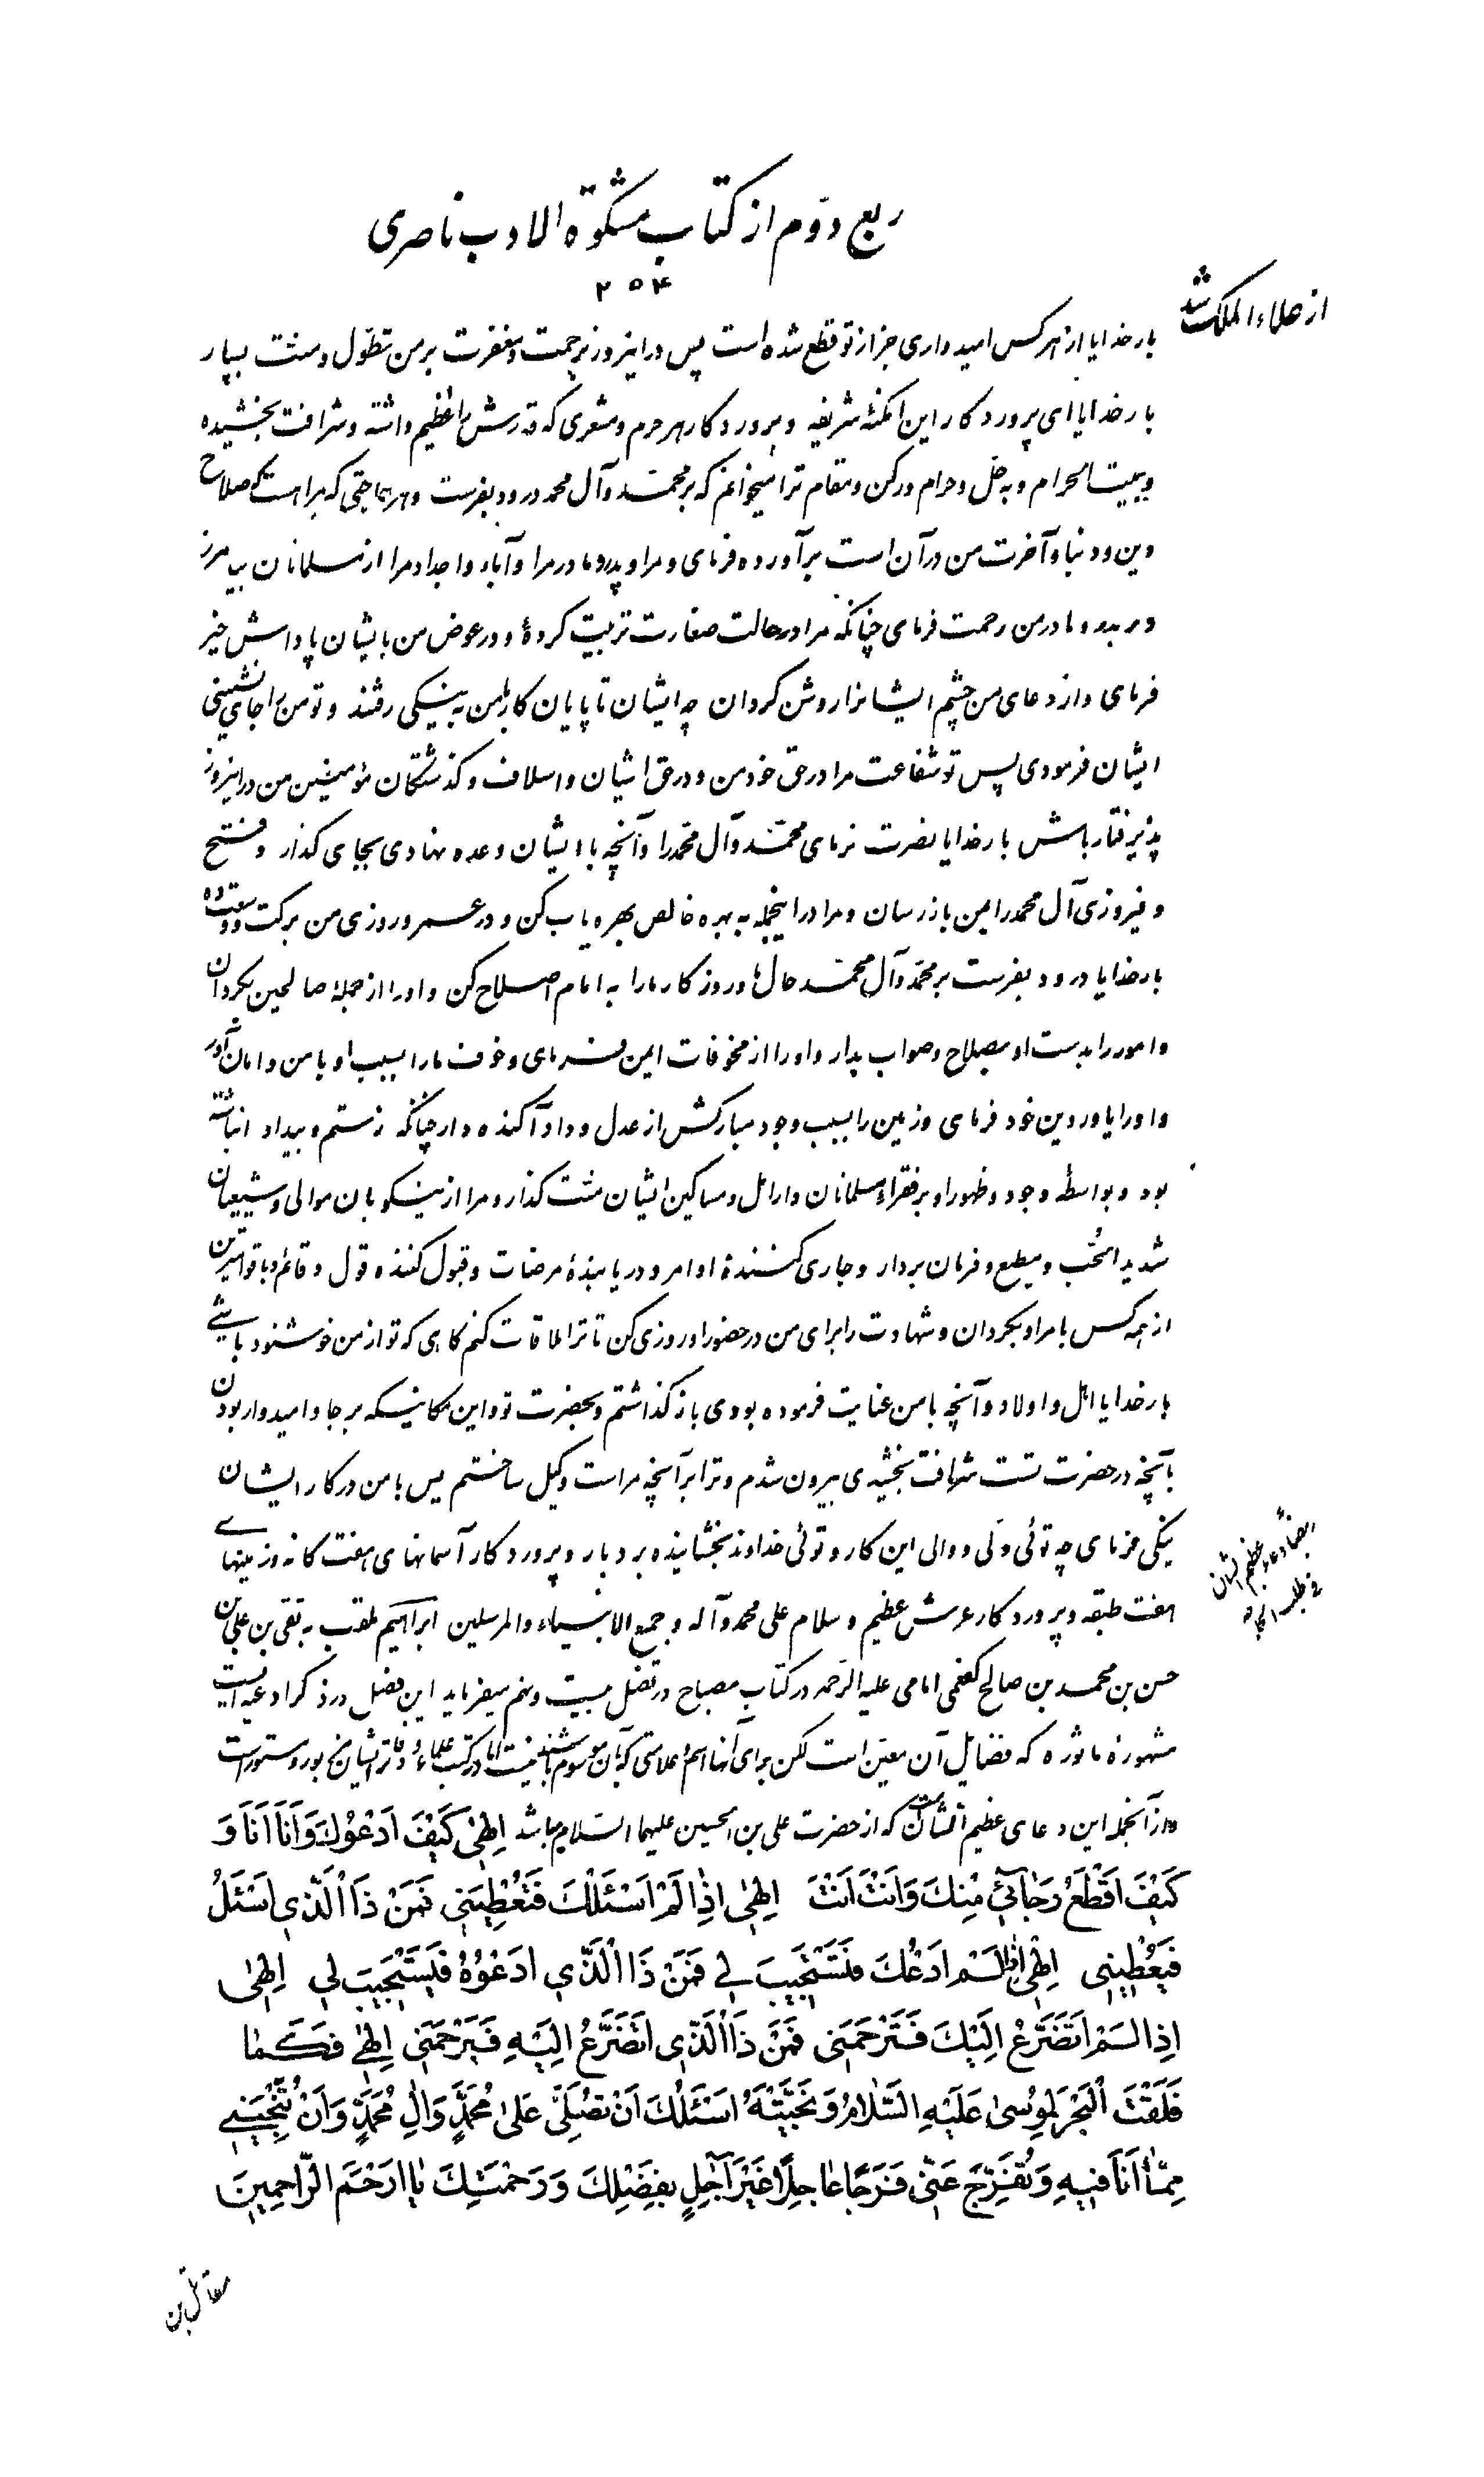 ربع دوّم از کتاب مشکوة الادب ناصری
۲۵۴
بارخدایا از هر کس امیدواری جز از تو قطع شده است پس در اینروز برحمت و مغفرت بر من تطوّل و منّت بسپار
بارخدایا ای پروردگار این امکنهٔ شریفه و پروردگار هر حرم و مشعری که قدرش را عظیم داشته و شرافت بخشیده
و ببیت الحرام و به حل و حرام و رکن و مقام ترا میخوانم که بر محمّد و آل محمد درود بفرست و هر حاجتی که مرا هست که صلاح
دین و دنیا و آخرت من در آن است برآورده فرمای و مرا و پدر و مادر مرا و آباء و اجداد مرا از مسلمانان بیامرز
و بر پدر و مادر من رحمت فرمای چنانکه مرا در حالت صغارت تربیت کرده‌ و در عوض من بایشان پاداش خیر
فرمای و از دعای من چشم ایشانرا روشن گردان چه ایشان تا پایان کار با من به نیکی رفتند و تو من را جای نشینی
ایشان فرمودی پس تو شفاعت مرا در حق خود من و در حق ایشان و اسلاف و گذشتگان مؤمنین من در اینروز
پذیرفتار باش بارخدایا نصرت فرمای محمّد و آل محمّد را و آنچه با ایشان وعده نهادی بجای گذار و فتح
و فیروزی آل محمد را بمن باز رسان و مرا در اینجمله به بهره خالص بهره یاب کن و در عمر و روزی من برکت و وسعت ده
بارخدایا درود بفرست بر محمّد و آل محمّد حال ما و روزگار ما را به امام اصلاح کن و او را از جملهٔ صالحین بگردان
و امور را بدست او بصلاح و صواب بدار و او را از مخوفات ایمن فرمای و خوف ما را بسبب او با من و امان آور
و او را یاور دین خود فرمای و زمین را بسبب وجود مبارکش از عدل و داد آکنده دار چنانکه ز ستم و بیداد انباشته
بود و بواسطهٔ وجود و ظهور او بر فقراء مسلمانان و ارامل و مساکین ایشان منّت گذار و مرا از نیکوبان موالی و شیعیان
شدید الحُبّ و مطیع و فرمان بردار و جاری کنندهٔ اوامر و دریابندهٔ مرضات و قبول کننده قول و قائم و باقوام‌ترین
از همه کس با مر او بگردان و شهادت را برای من در حضور او روزی کن تا ترا ملاقات کنم گاهی که تو از من خوشنود باشی
بارخدایا اهل و اولاد و آنچه با من عنایت فرموده بودی باز گذاشتم و بحضرت تو و این مکانیکه بر جا و امیدوار بودن
بآنچه در حضرت تست شرافت بخشیدی بیرون شدم و ترا بر آنچه مراست وکیل ساختم پس با من در کار ایشان
نیکی فرمای چه توئی ولی و والی این کار و توئی خداوند بخشاینده بردبار و پروردگار آسمانهای هفت گانه و زمینهای
هفت طبقه و پروردگار عرش عظیم و سلام علی محمد و آله و جمیع الانبیاء والمرسلین ابراهیم ملقب به تقی بن علی بن
حسن بن محمد بن صالح کفعمی امامی علیه الرّحمه در کتاب مصباح در فصل بیست و نهم میفرماید این فصل در ذکر ادعیه ایست
مشهورهٔ ماثوره که فضایل آن معیّن است لکن برای آنها اسم و علامتی که بآن موسوم باشند نیست امّا در کتب علماء و دفاتر ایشان مزبور و مستور است
و از آنجمله این دعای عظیم الشأن است که از حضرت علی بن الحسین علیهما السّلام میباشد اِلهی کَیْفَ اَدْعُوكَ وَاَنَا اَنَا وَ
کَیْفَ اَقْطَعُ رَجائِی مِنْكَ وَاَنْتَ اَنْتَ اِلهی اِذا لَمْ اَسْئَلْكَ فَتُعْطِیَنی فَمَنْ ذَا الَّذی اَسْئَلُهُ
فَیُعْطینی اِلهی اِذا لَمْ اَدْعُكَ فَتَسْتَجیبَ لی فَمَنْ ذَا الَّذی اَدْعُوهُ فَیَسْتَجیبَ لی اِلهی
اِذا لَمْ اَتَضَرَّعْ اِلَیْكَ فَتَرْحَمَنی فَمَنْ ذَا الَّذی اَتَضَرَّعُ اِلَیْهِ فَیَرْحَمَنی اِلهی فَکَما
فَلَقْتَ الْبَحْرَ لِمُوسی عَلَیْهِ السَّلامُ وَنَجَّیْتَهُ اَسْئَلُكَ اَنْ تُصَلِّیَ عَلی مُحَمَّدٍ وَآلِ مُحَمَّدٍ وَاَنْ تُنْجِیَنی
مِمّا اَنَا فیهِ وَتُفَرِّجَ عَنّی فَرَجًا عاجِلًا غَیْرَ آجِلٍ بِفَضْلِكَ وَرَحْمَتِكَ یا اَرْحَمَ الرّاحِمینَ
ایضا دعاء عظیم الشان
مقاتل بن